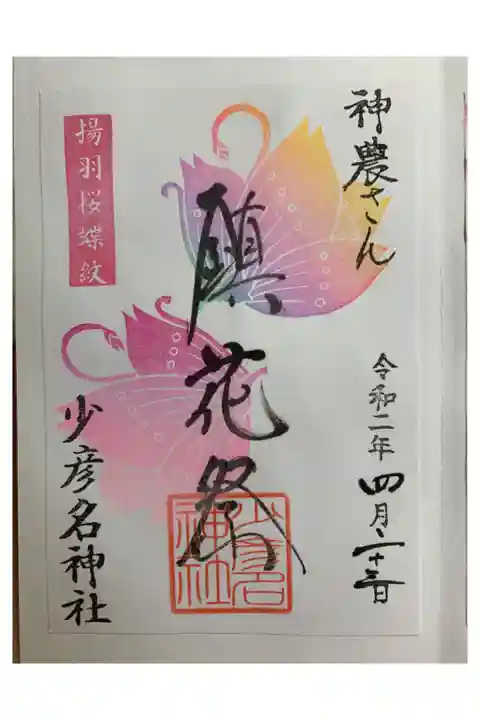 神農さん
令和二年四月二十三日
鎮花祭
少彦名神社
揚羽桜蝶紋
少彦名神社